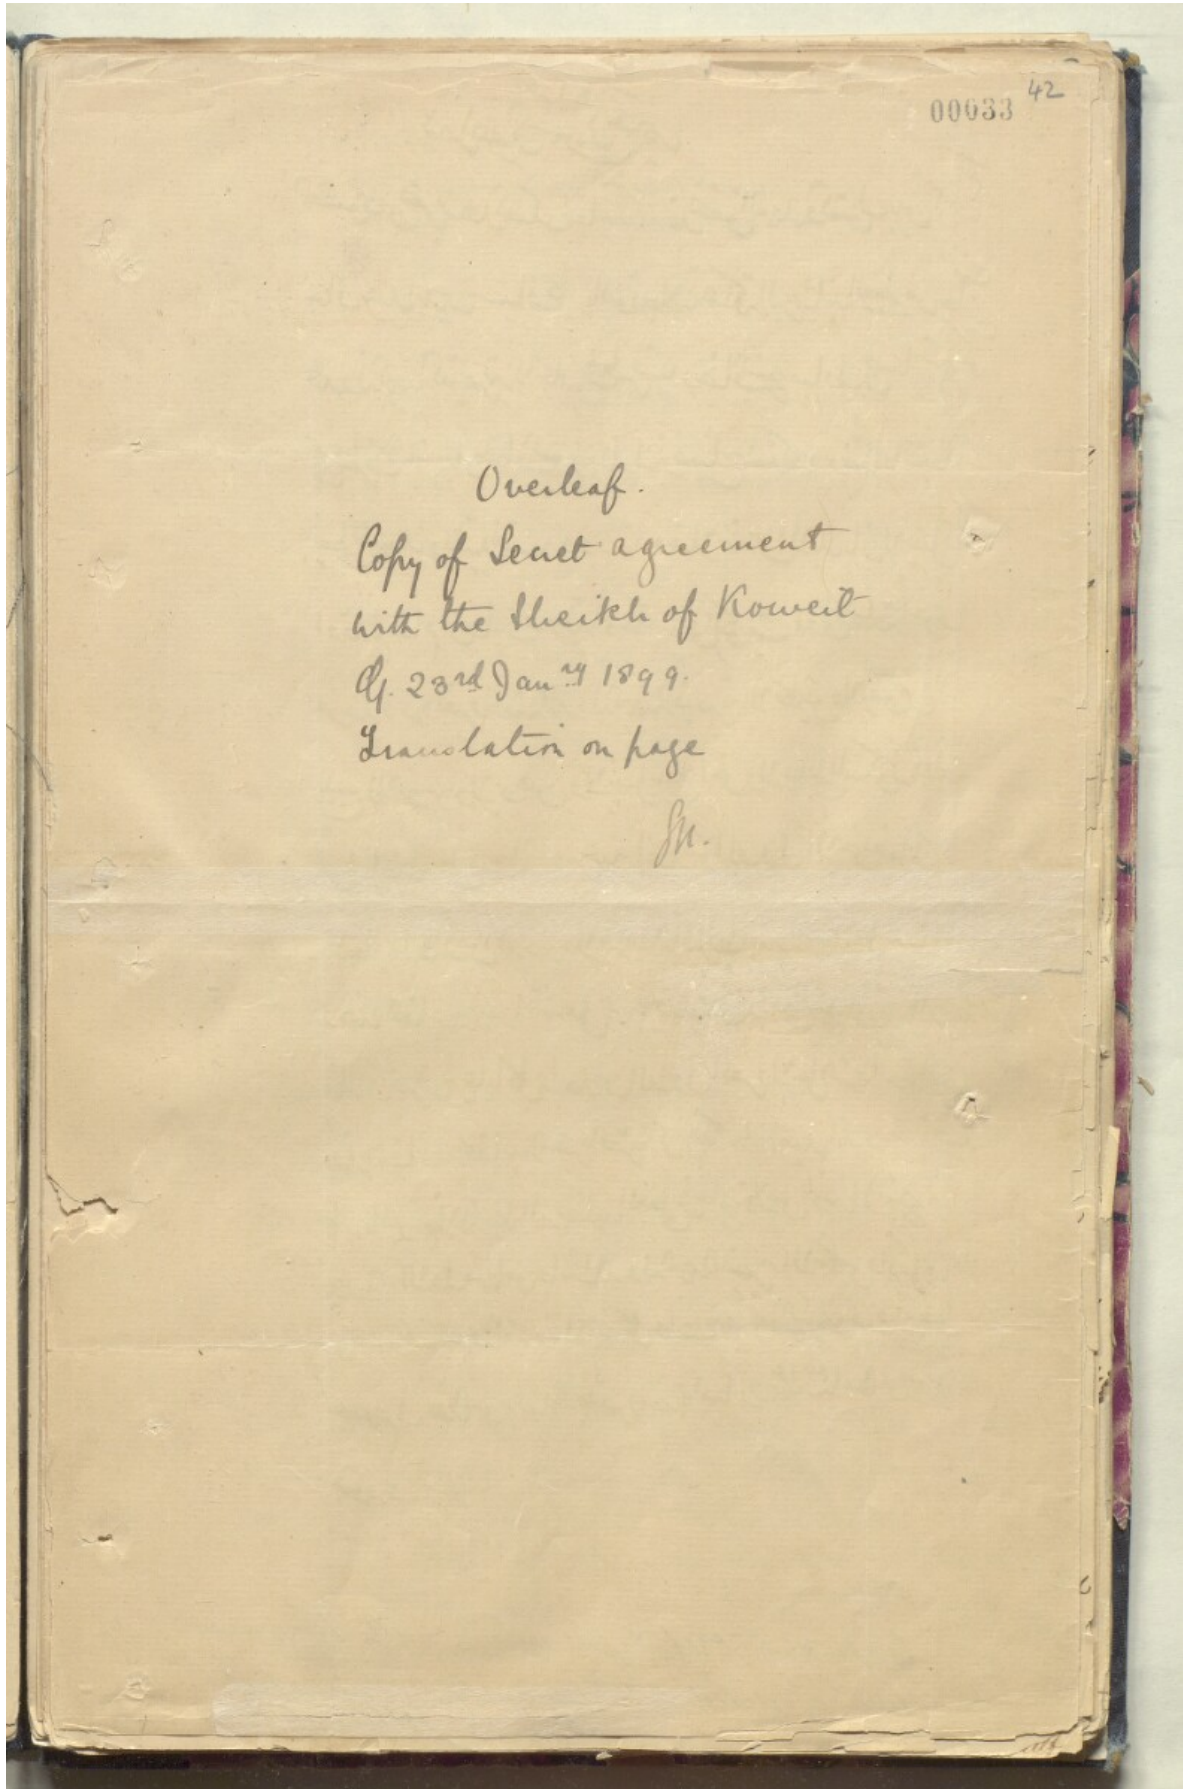 42
00033
Overleaf.
Copy of Secret agreement
with the Sheikh of Koweit
of 23rd Janry 1899.
Translation on page